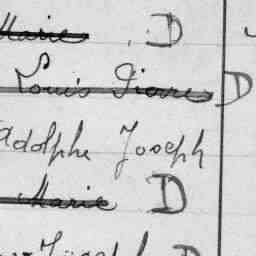 Marie D
Louis Pierre D
Adolphe Joseph
Marie D
Joseph D